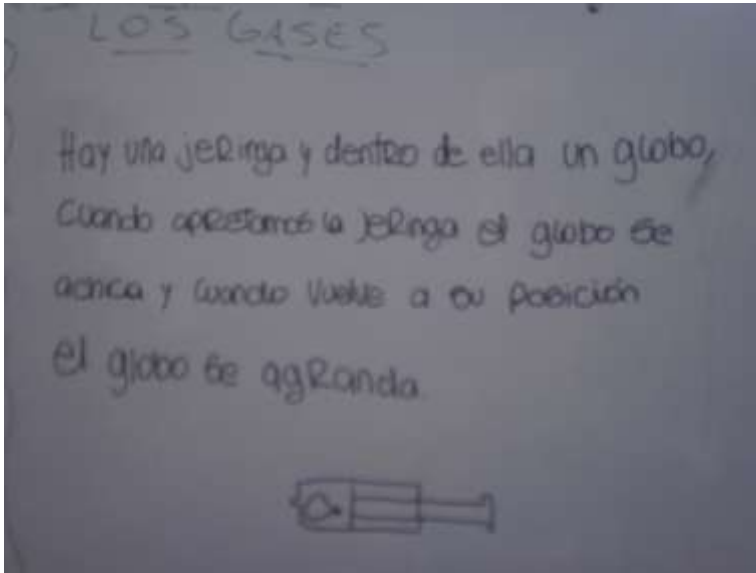 LOS GASES
Hay una jeringa y dentro de ella un globo,
cuando apretamos la jeringa el globo se
achica y cuando vuelve a su posición
el globo se agranda.